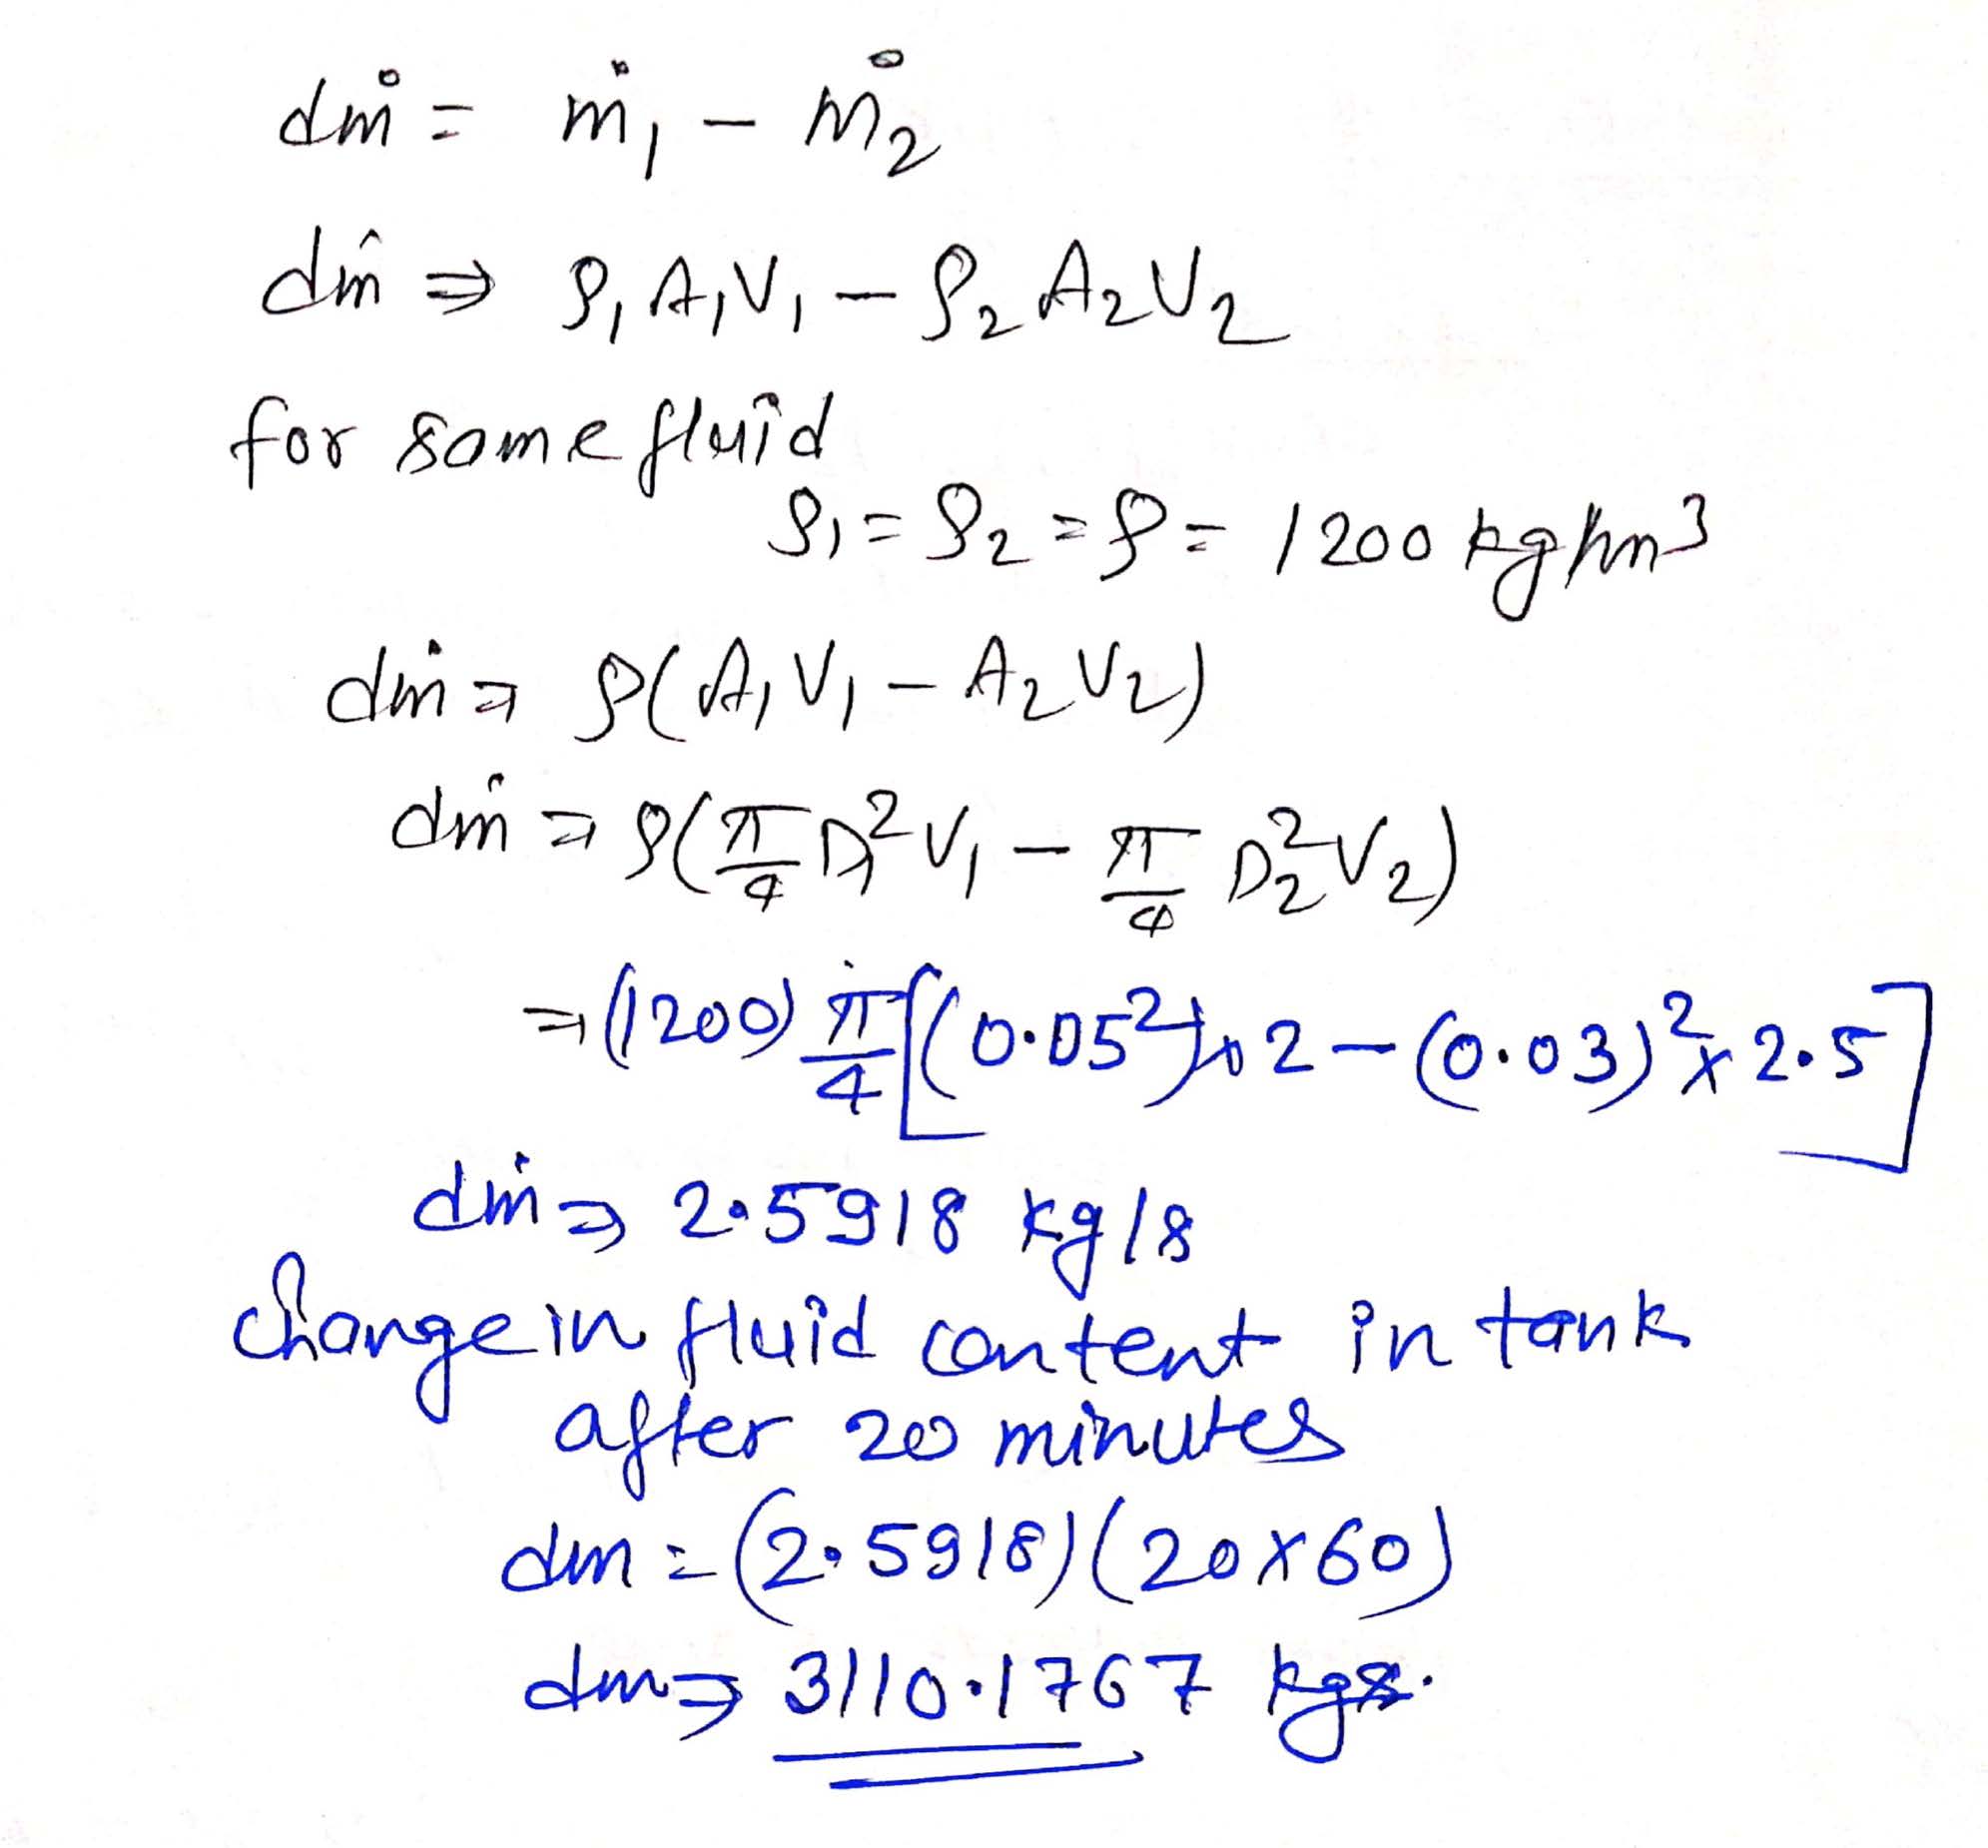 dṁ = ṁ₁ − ṁ₂
dṁ ⇒ ρ₁A₁V₁ − ρ₂A₂V₂
for same fluid
ρ₁ = ρ₂ = ρ = 1200 kg/m³
dṁ ⇒ ρ(A₁V₁ − A₂V₂)
dṁ ⇒ ρ(π/4 D₁²V₁ − π/4 D₂²V₂)
⇒ (1200) π/4 [(0.05²)×2 − (0.03)²×2.5]
dṁ ⇒ 2.5918 kg/s
Change in fluid content in tank
after 20 minutes
dm = (2.5918)(20×60)
dm ⇒ 3110.1767 kgs.